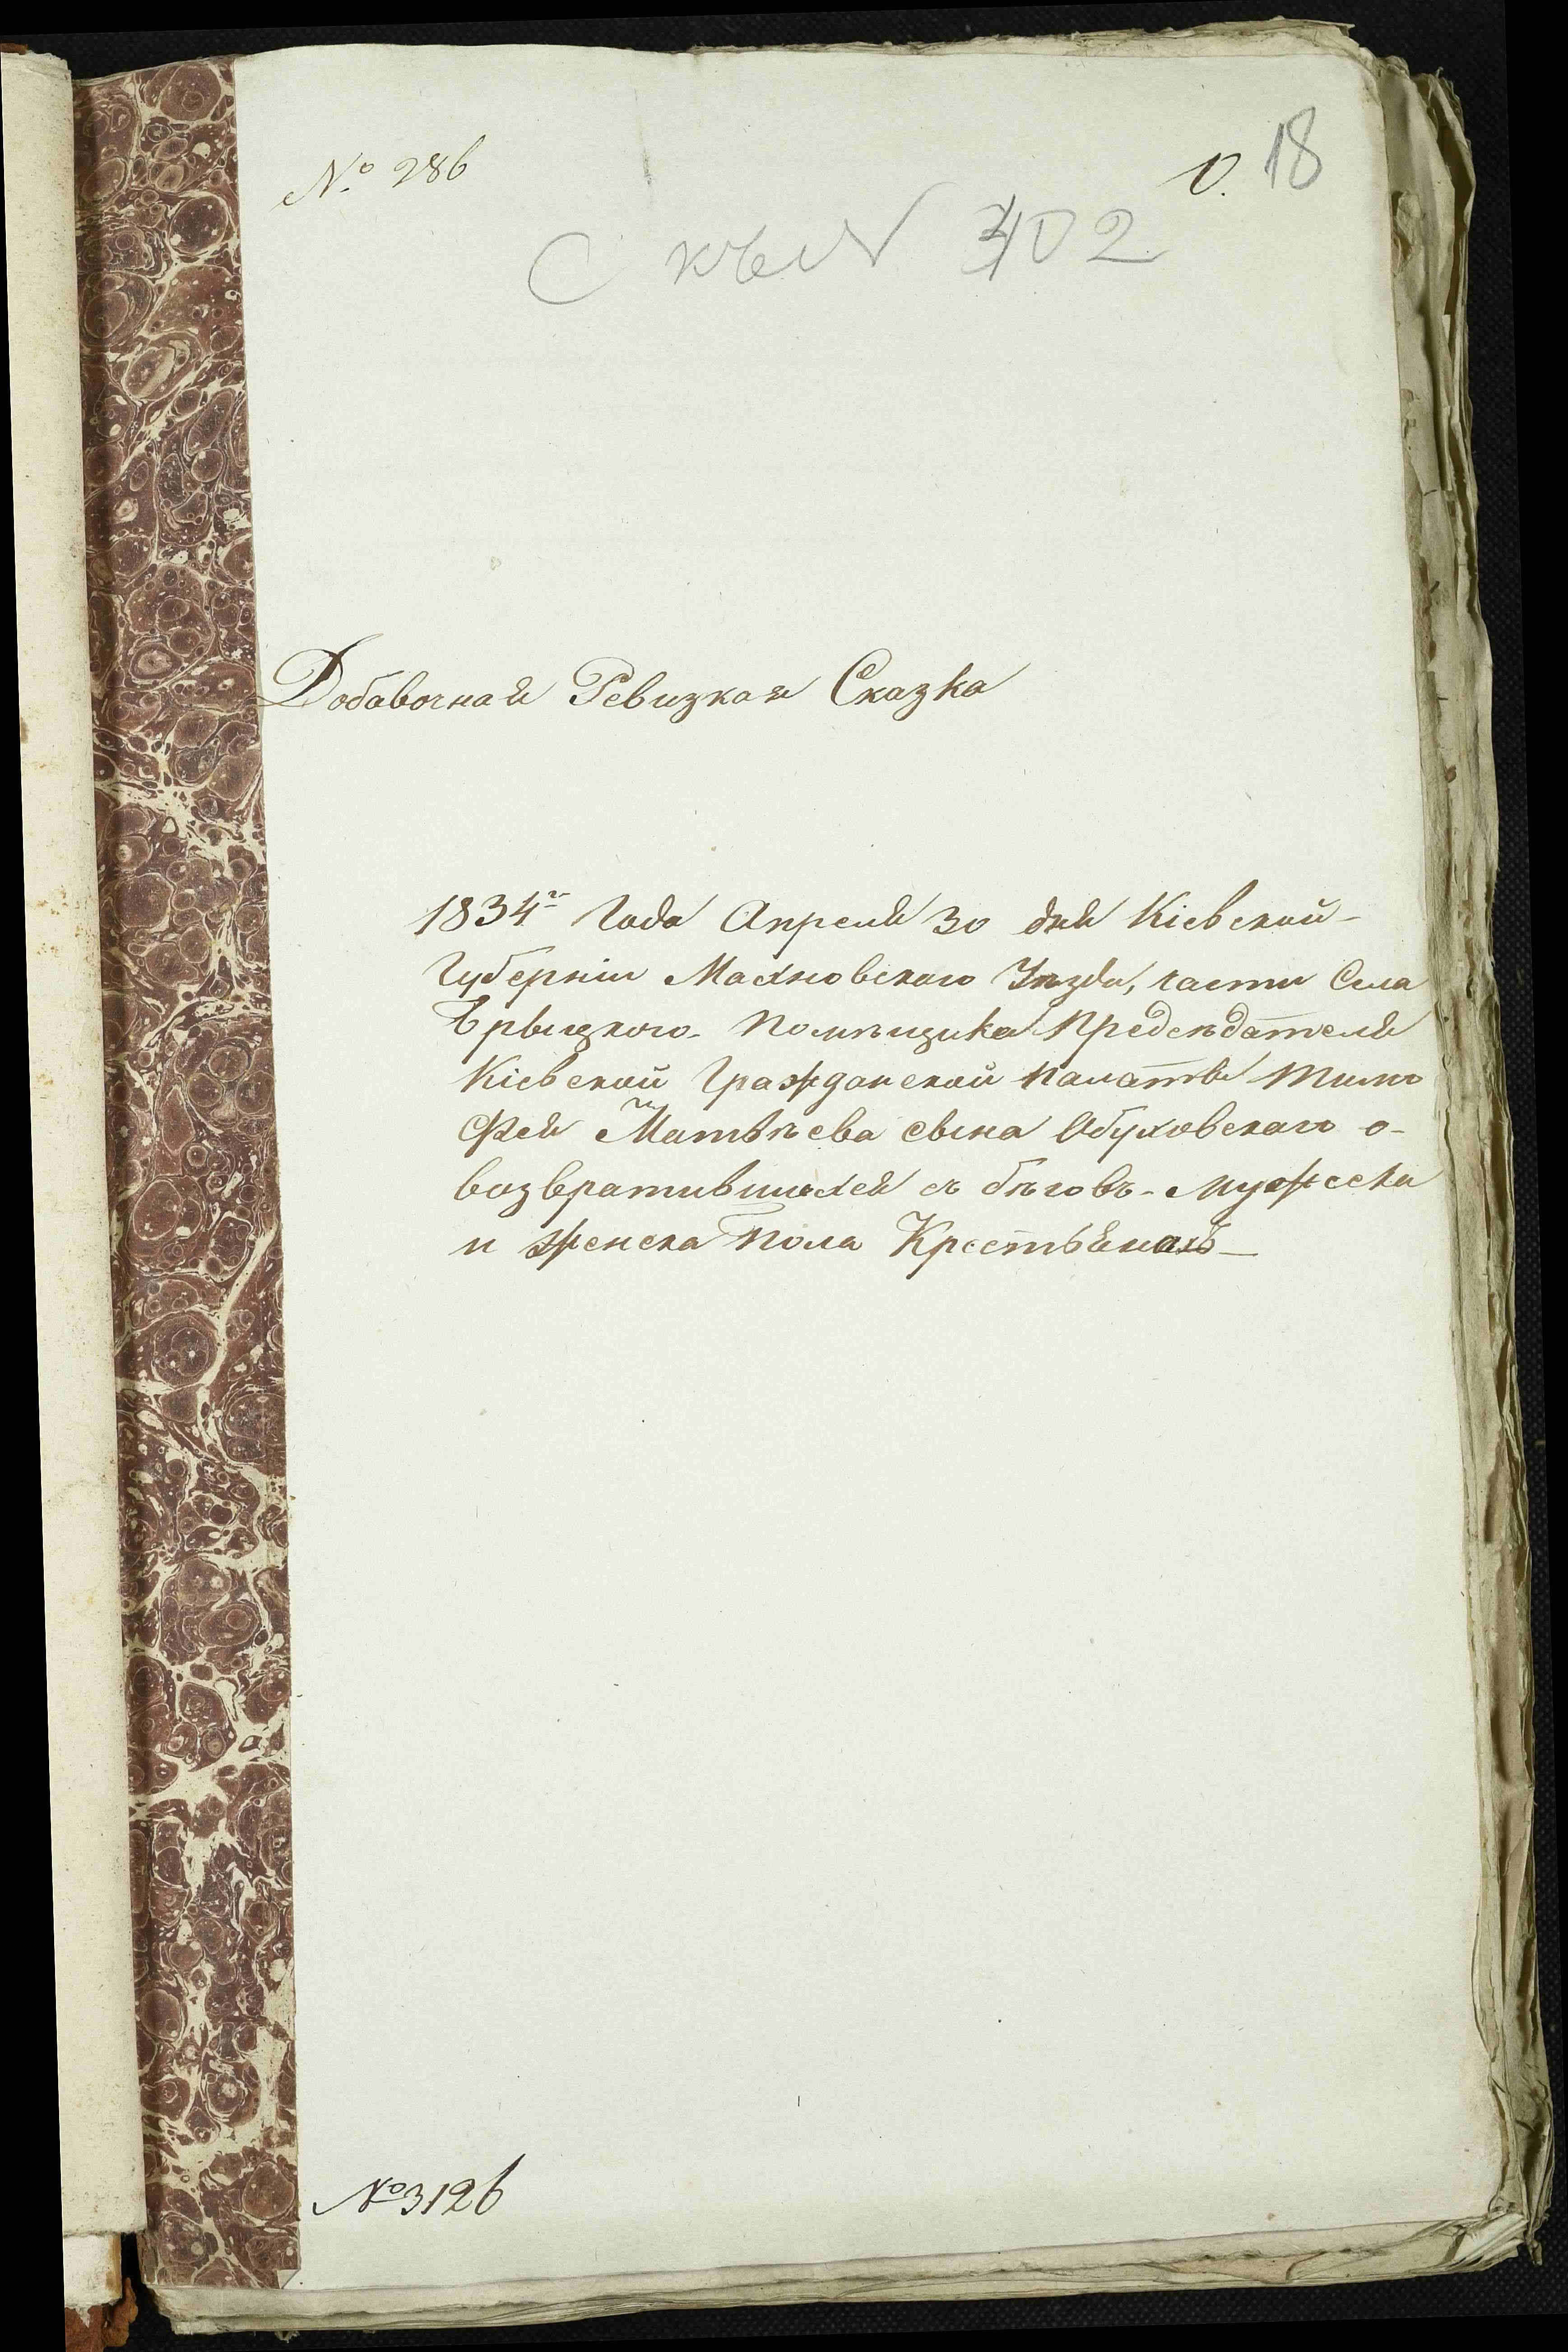 № 286
18
къ № 402
Добавочная Ревизкая Сказка
1834го Года Апреля 30 дня Кіевской
Губерніи Махновского Уѣзда, части Села
Помѣщика Председателя
Кіевской Гражданской палаты Тимо
фея Матвѣева сына Обуховского о
возвратившихся съ бѣговъ Мужеска
и женска пола Крестьянахъ
№ 3126